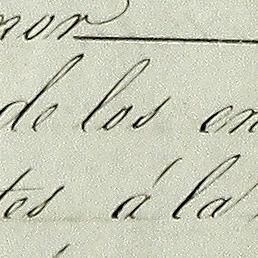 nor
de los en
tes á la